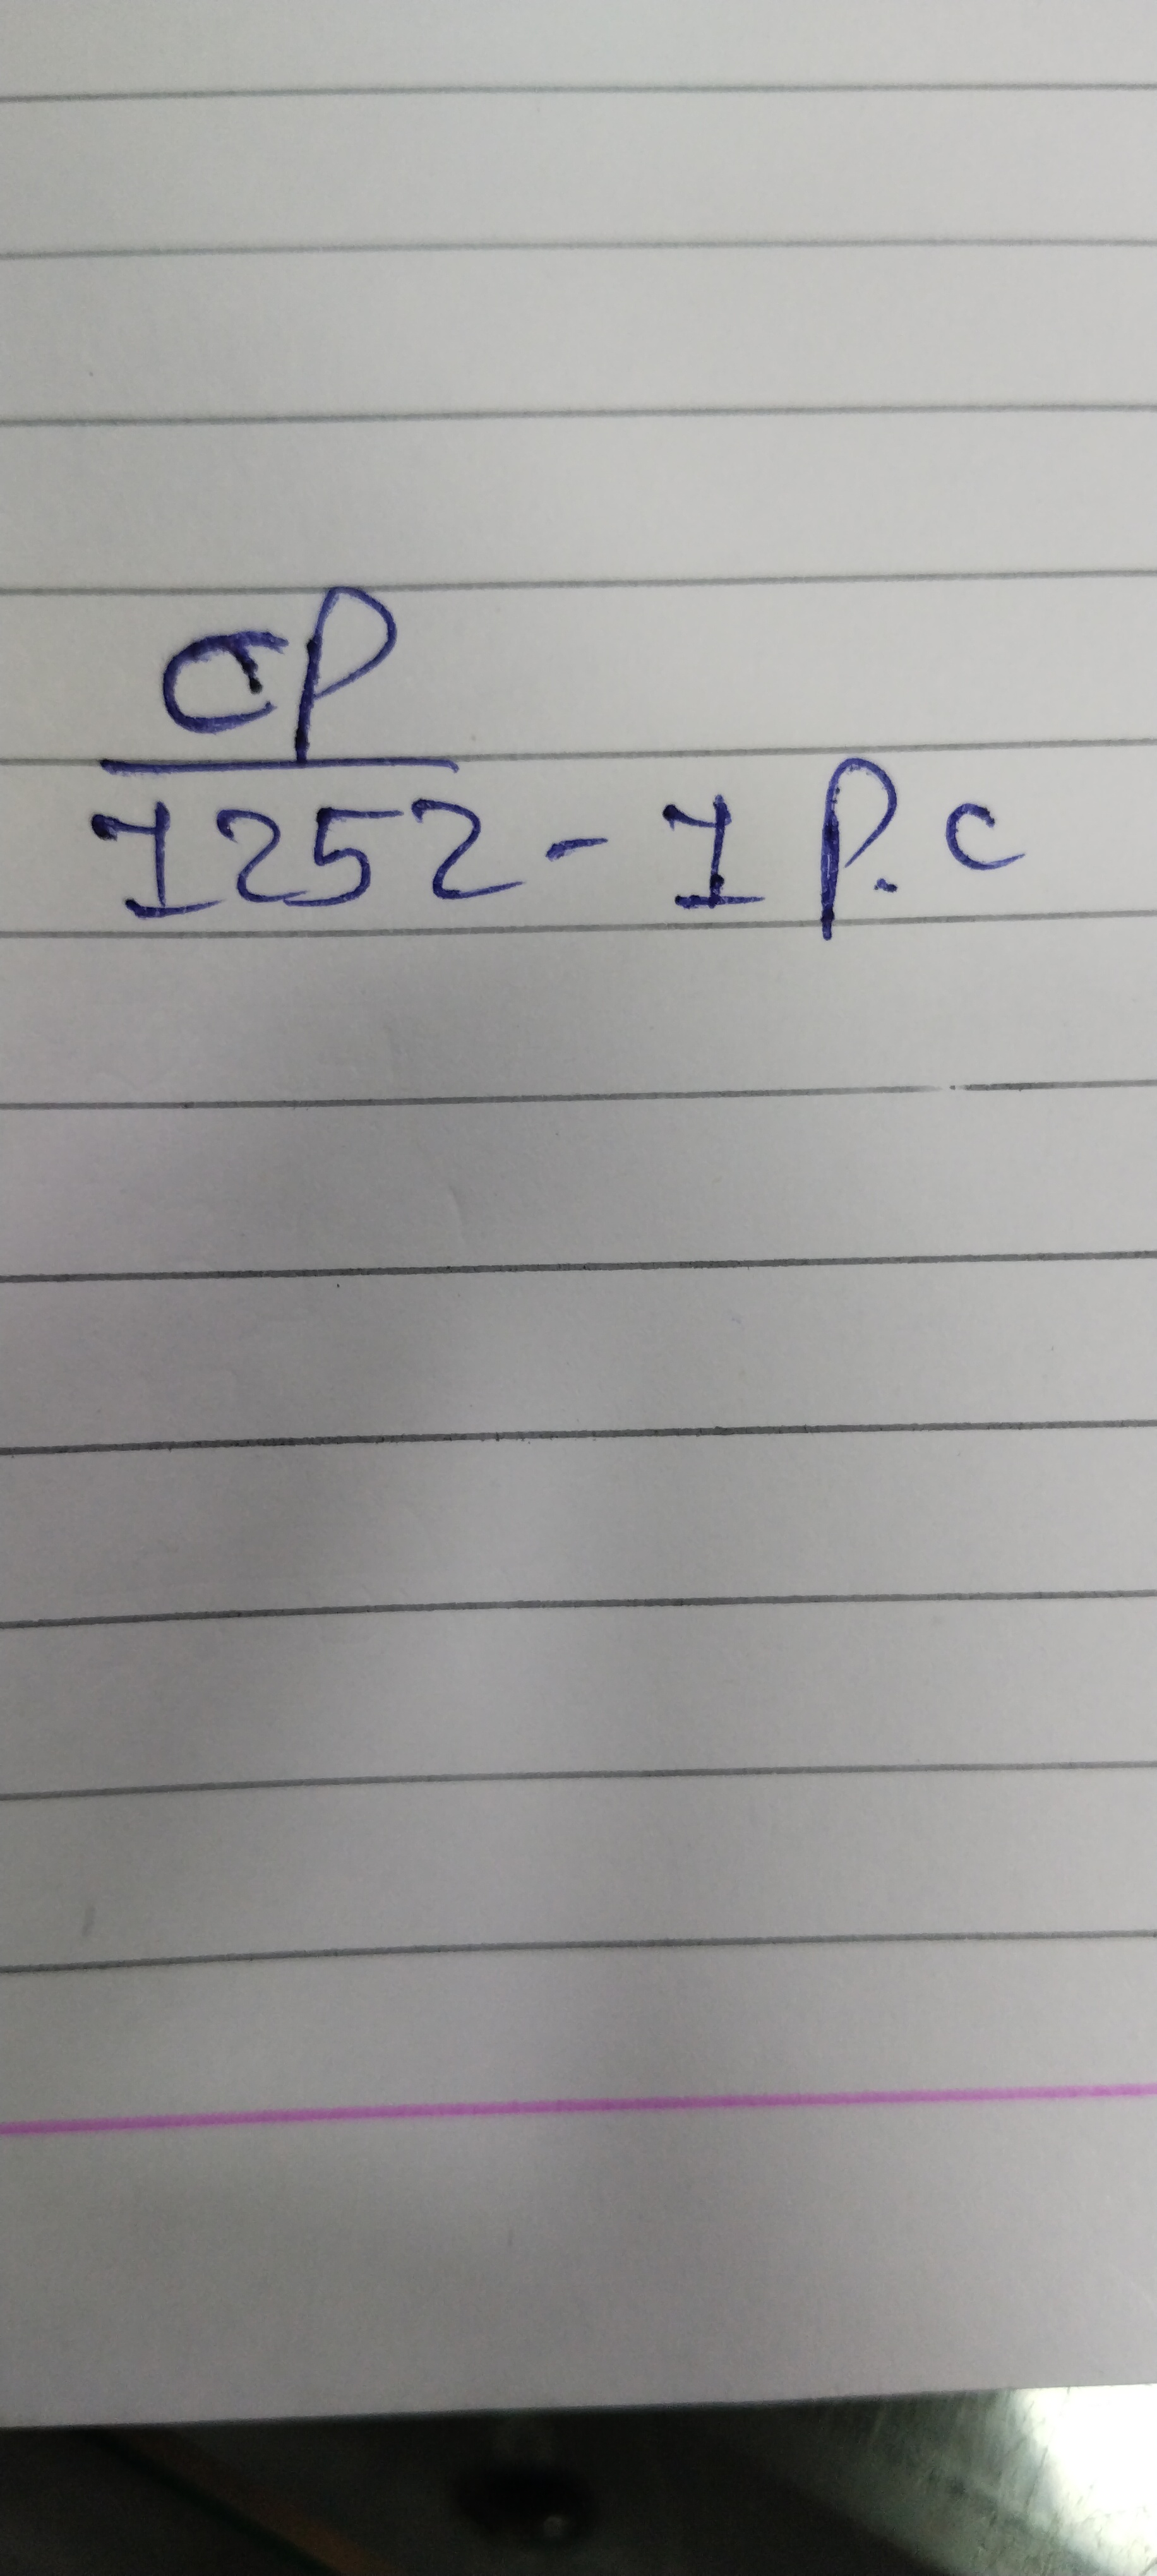 CP
1252 - 1 P.C